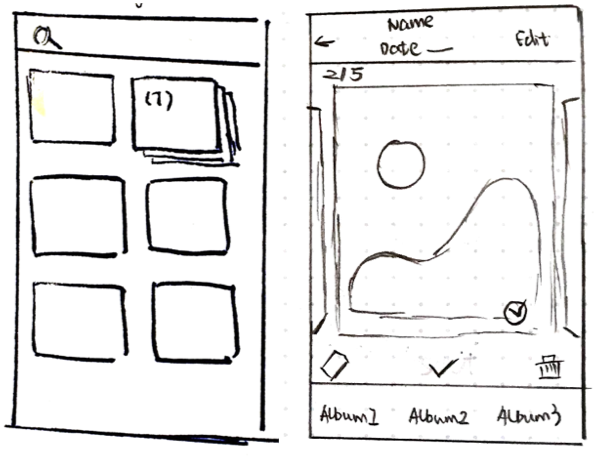 (7)
Name
Date
Edit
2/5
Album1
Album2
Album3